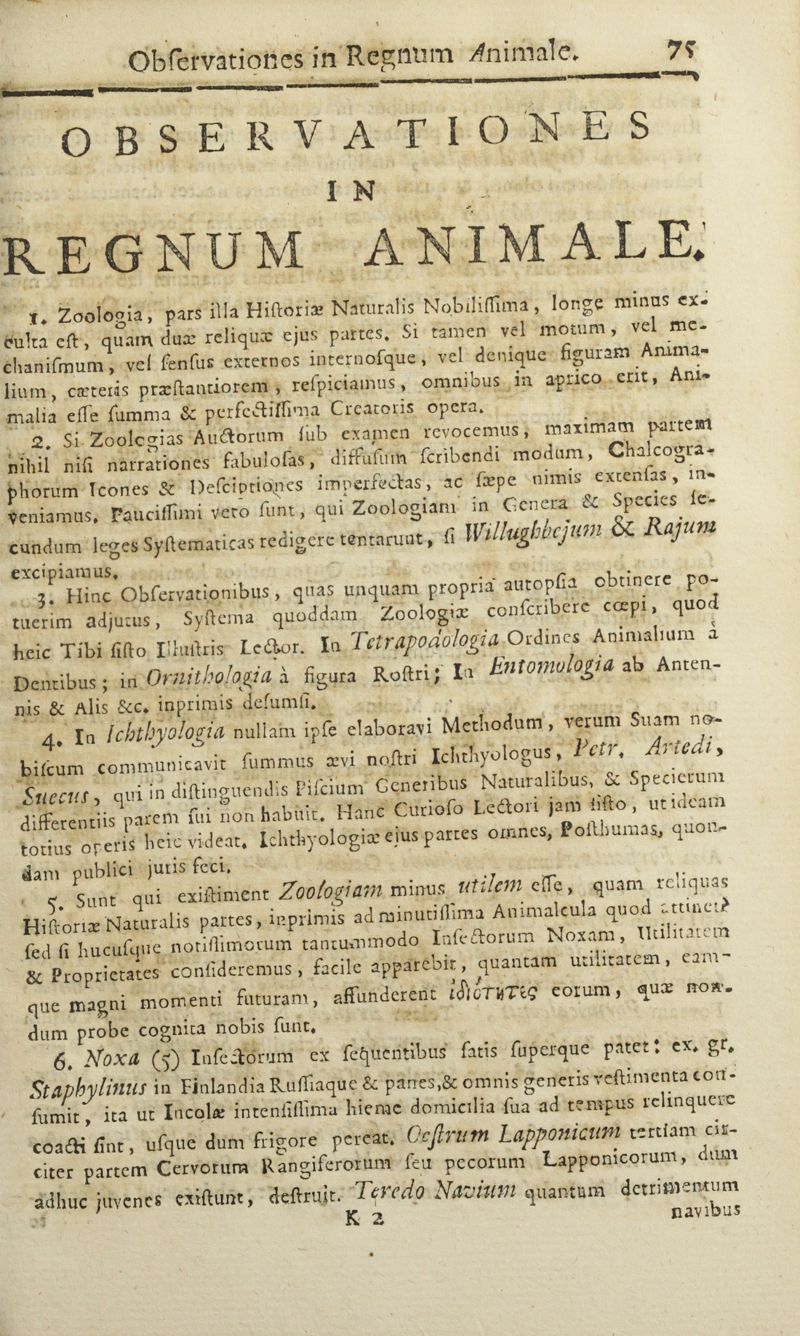 Obſervationes in Regnum Animale. 75
OBSERVATIONES
IN
REGNUM ANIMALE.
1. Zoologia, pars illa Hiſtoriæ Naturalis Nobiliſſima, longe minus ex-
culta eſt, quam duæ reliquæ ejus partes. Si tamen vel motum, vel me-
chaniſmum, vel ſenſus externos internoſque, vel denique figuram Anima-
lium, cæteris præſtantiorem, reſpiciamus, omnibus in aprico erit, Ani-
malia eſſe ſumma & perfectiſſima Creatoris opera.
2. Si Zoologias Auctorum ſub examen revocemus, maximam partem
nihil niſi narrationes fabuloſas, diffuſum ſcribendi modum, Chalcogra-
phorum Icones & Deſciptiones imperfectas, ac ſæpe nimis extenſas, in-
veniamus. Pauciſſimi vero ſunt, qui Zoologiam in Genera & Species ſe-
cundum leges Syſtematicas redigere tentaruut, ſi Willughbejum & Rajum
excipiamus.
3. Hinc Obſervationibus, quas unquam propria autopſia obtinere po-
tuerim adjutus, Syſtema quoddam Zoologiæ conſcribere cœpi, quod
heic Tibi ſiſto Illuſtris Lector. In Tetrapodologia Ordines Animalium a
Dentibus; in Ornithologia à figura Roſtri; In Entomologia ab Anten-
nis & Alis &c. inprimis deſumſi.
4. In Ichthyologia nullam ipſe elaboravi Methodum, verum Suam no-
biſcum communicavit ſummus ævi noſtri Ichthyologus, Petr. Artedi,
Suecus, qui in diſtinguendis Piſcium Generibus Naturalibus, & Specierum
differentiis parem ſui non habuit. Hanc Curioſo Lectori jam ſiſto, ut ideam
totius operis heic videat. Ichthyologiæ ejus partes omnes, Poſthumas, quon-
dam publici juris feci.
5. Sunt qui exiſtiment Zoologiam minus utilem eſſe, quam reliquas
Hiſtoriæ Naturalis partes, inprimis ad minutiſſima Animalcula quod attinet;
ſed ſi hucuſque notiſſimorum tantummodo Inſectorum Noxam, Utilitatem
& Proprietates conſideremus, facile apparebit, quantam utilitatem, eam-
que magni momenti futuram, affunderent ἰδιότητες eorum, quæ non-
dum probe cognita nobis ſunt.
6. Noxa (5) Inſectorum ex ſequentibus ſatis ſuperque patet: ex. gr.
Staphylinus in Finlandia Ruſſiaque & panes, & omnis generis veſtimenta con-
ſumit, ita ut Incolæ intenſiſſima hieme domicilia ſua ad tempus relinquere
coacti ſint, uſque dum frigore pereat. Oeſtrum Lapponicum tertiam cir-
citer partem Cervorum Rangiferorum ſeu pecorum Lapponicorum, dum
adhuc juvenes exiſtunt, deſtruit. Teredo Navium quantum detrimentum
K 2 navibus